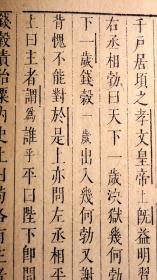 千戶居頃之孝文皇帝上旣益明習
右丞相勃曰天下一歲決獄幾何勃
下一歲錢穀一歲出入幾何勃又謝
背愧不能對於是上亦問左丞相平
上曰主者謂爲誰乎平曰陛下卽問
錢穀責治粟內史上曰
各有主者